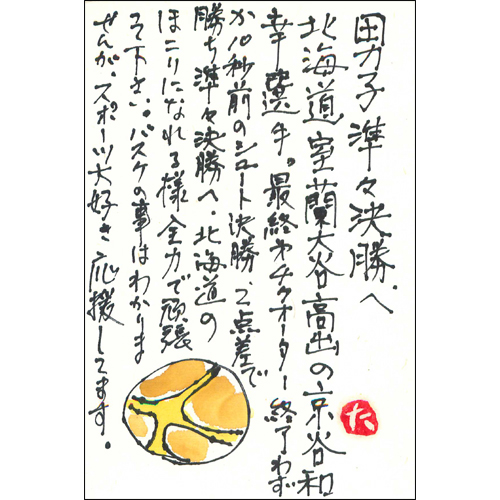 男子準々決勝へ
北海道室蘭大谷高出の京谷和
幸選手。最終第4クオーター終了わず
か10秒前のシュート決勝、2点差で
勝ち準々決勝へ。北海道の
ほこりになれる様全力で頑張
って下さい。バスケの事はわかりま
せんが、スポーツ大好き応援してます。
た